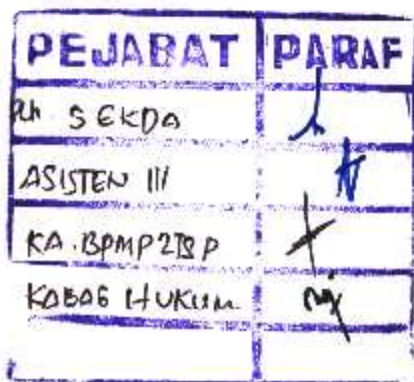 PEJABAT PARAF
Plh SEKDA
ASISTEN III
KA. BPMP2TSP
KABAG HUKUM